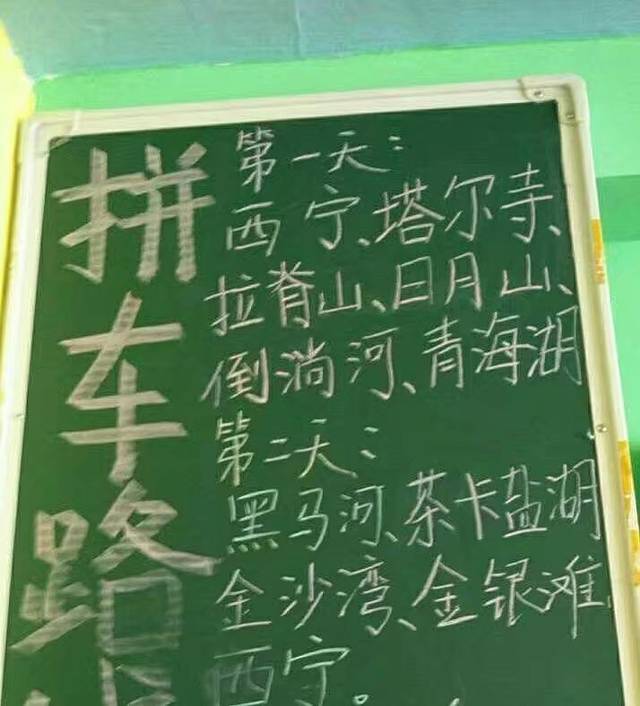 拼车路
第一天：
西宁、塔尔寺、
拉脊山、日月山、
倒淌河、青海湖
第二天：
黑马河、茶卡盐湖
金沙湾、金银滩
西宁